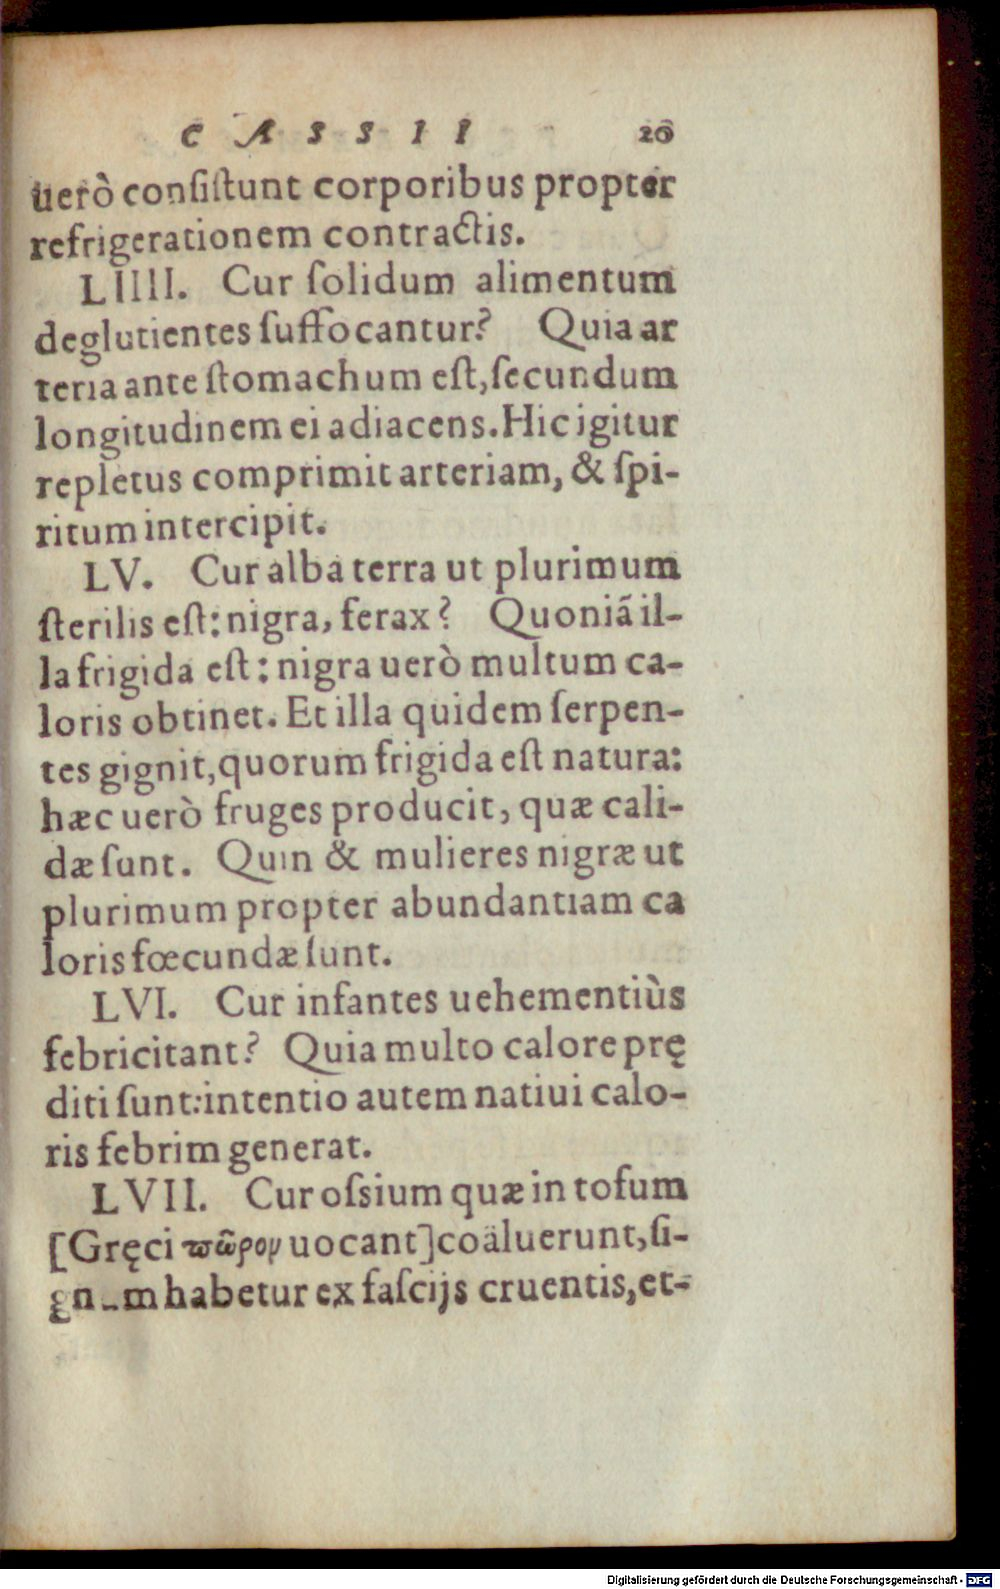 CASSII 20
uerò consiſtunt corporibus propter
refrigerationem contractis.
LIIII. Cur ſolidum alimentum
deglutientes ſuffocantur? Quia ar
teria ante ſtomachum eſt, ſecundum
longitudinem ei adiacens. Hic igitur
repletus comprimit arteriam, & ſpi-
ritum intercipit.
LV. Cur alba terra ut plurimum
ſterilis eſt: nigra, ferax? Quoniã il-
la frigida eſt: nigra uerò multum ca-
loris obtinet. Et illa quidem ſerpen-
tes gignit, quorum frigida eſt natura:
hæc uerò fruges producit, quæ cali-
dæ ſunt. Quin & mulieres nigræ ut
plurimum propter abundantiam ca
loris fœcundæ ſunt.
LVI. Cur infantes uehementiùs
febricitant? Quia multo calore prę
diti ſunt: intentio autem natiui calo-
ris febrim generat.
LVII. Cur oſsium quæ in tofum
[Gręci πῶρον uocant] coäluerunt, ſi-
gnum habetur ex faſcijs cruentis, et-
Digitalisierung gefördert durch die Deutsche Forschungsgemeinschaft - DFG